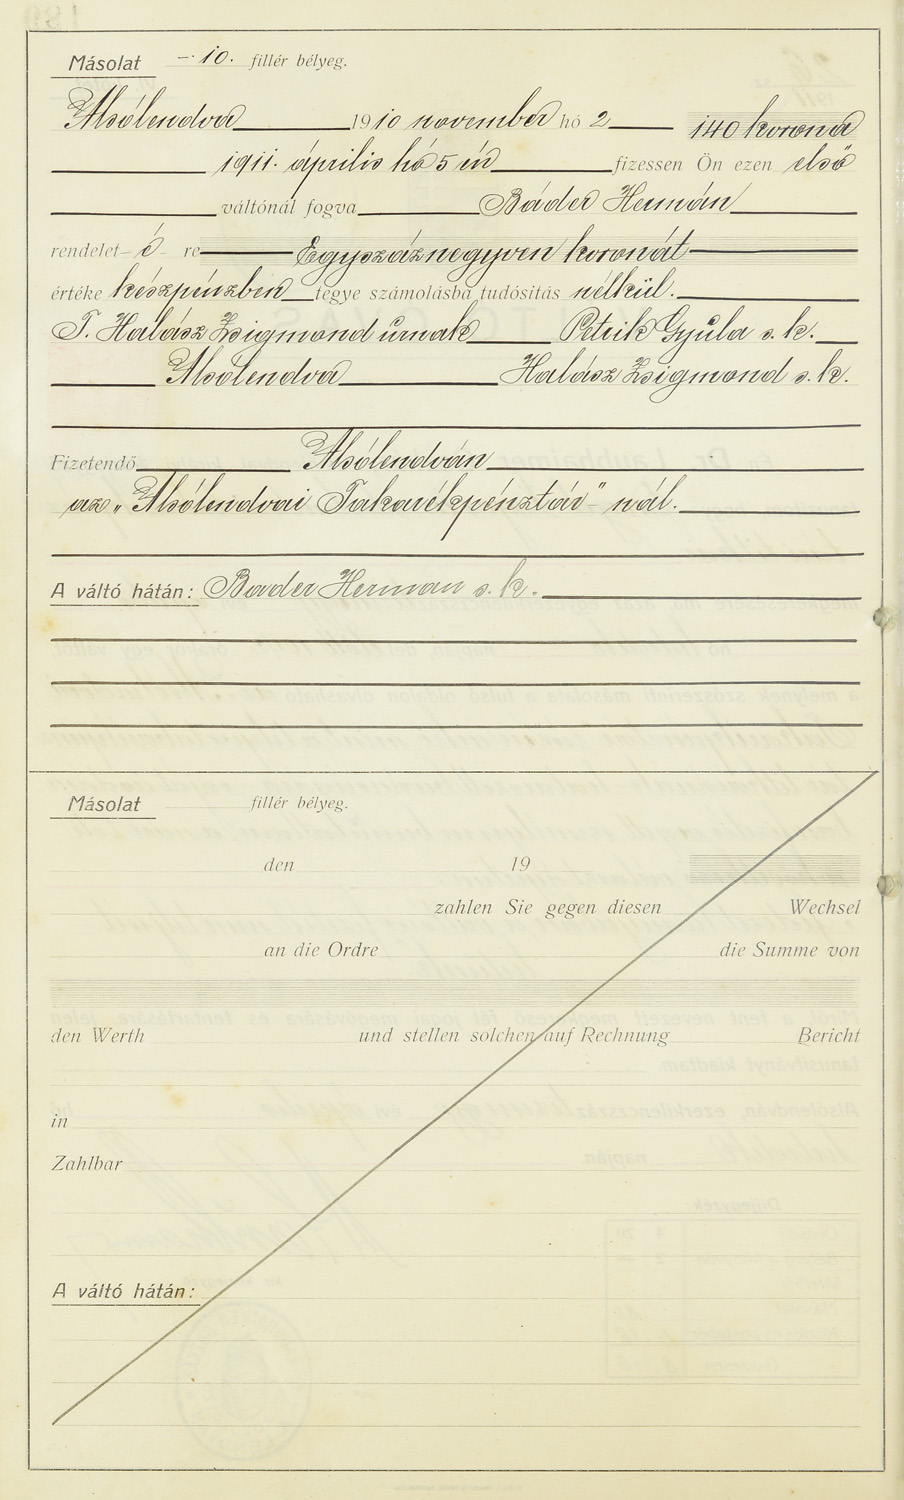 Másolat – 10. fillér bélyeg.
Alsólendva 1910 november hó 2 140 korona
1911. április hó 5 én fizessen Ön ezen első
váltónál fogva Báder Hermán
rendelet ő re Egyszáznegyven koronát
értéke készpénzben tegye számolásba tudósitás nélkül.
T. Halász Zsigmond úrnak Petrik Gyula s. k.
Alsólendva Halász Zsigmond s. k.
Fizetendő Alsólendván
az „Alsólendvai Takarékpénztár"-nál.
A váltó hátán: Bader Herman s. k.
Másolat fillér bélyeg.
den 19
zahlen Sie gegen diesen Wechsel
an die Ordre die Summe von
den Werth und stellen solchen auf Rechnung Bericht
in
Zahlbar
A váltó hátán: